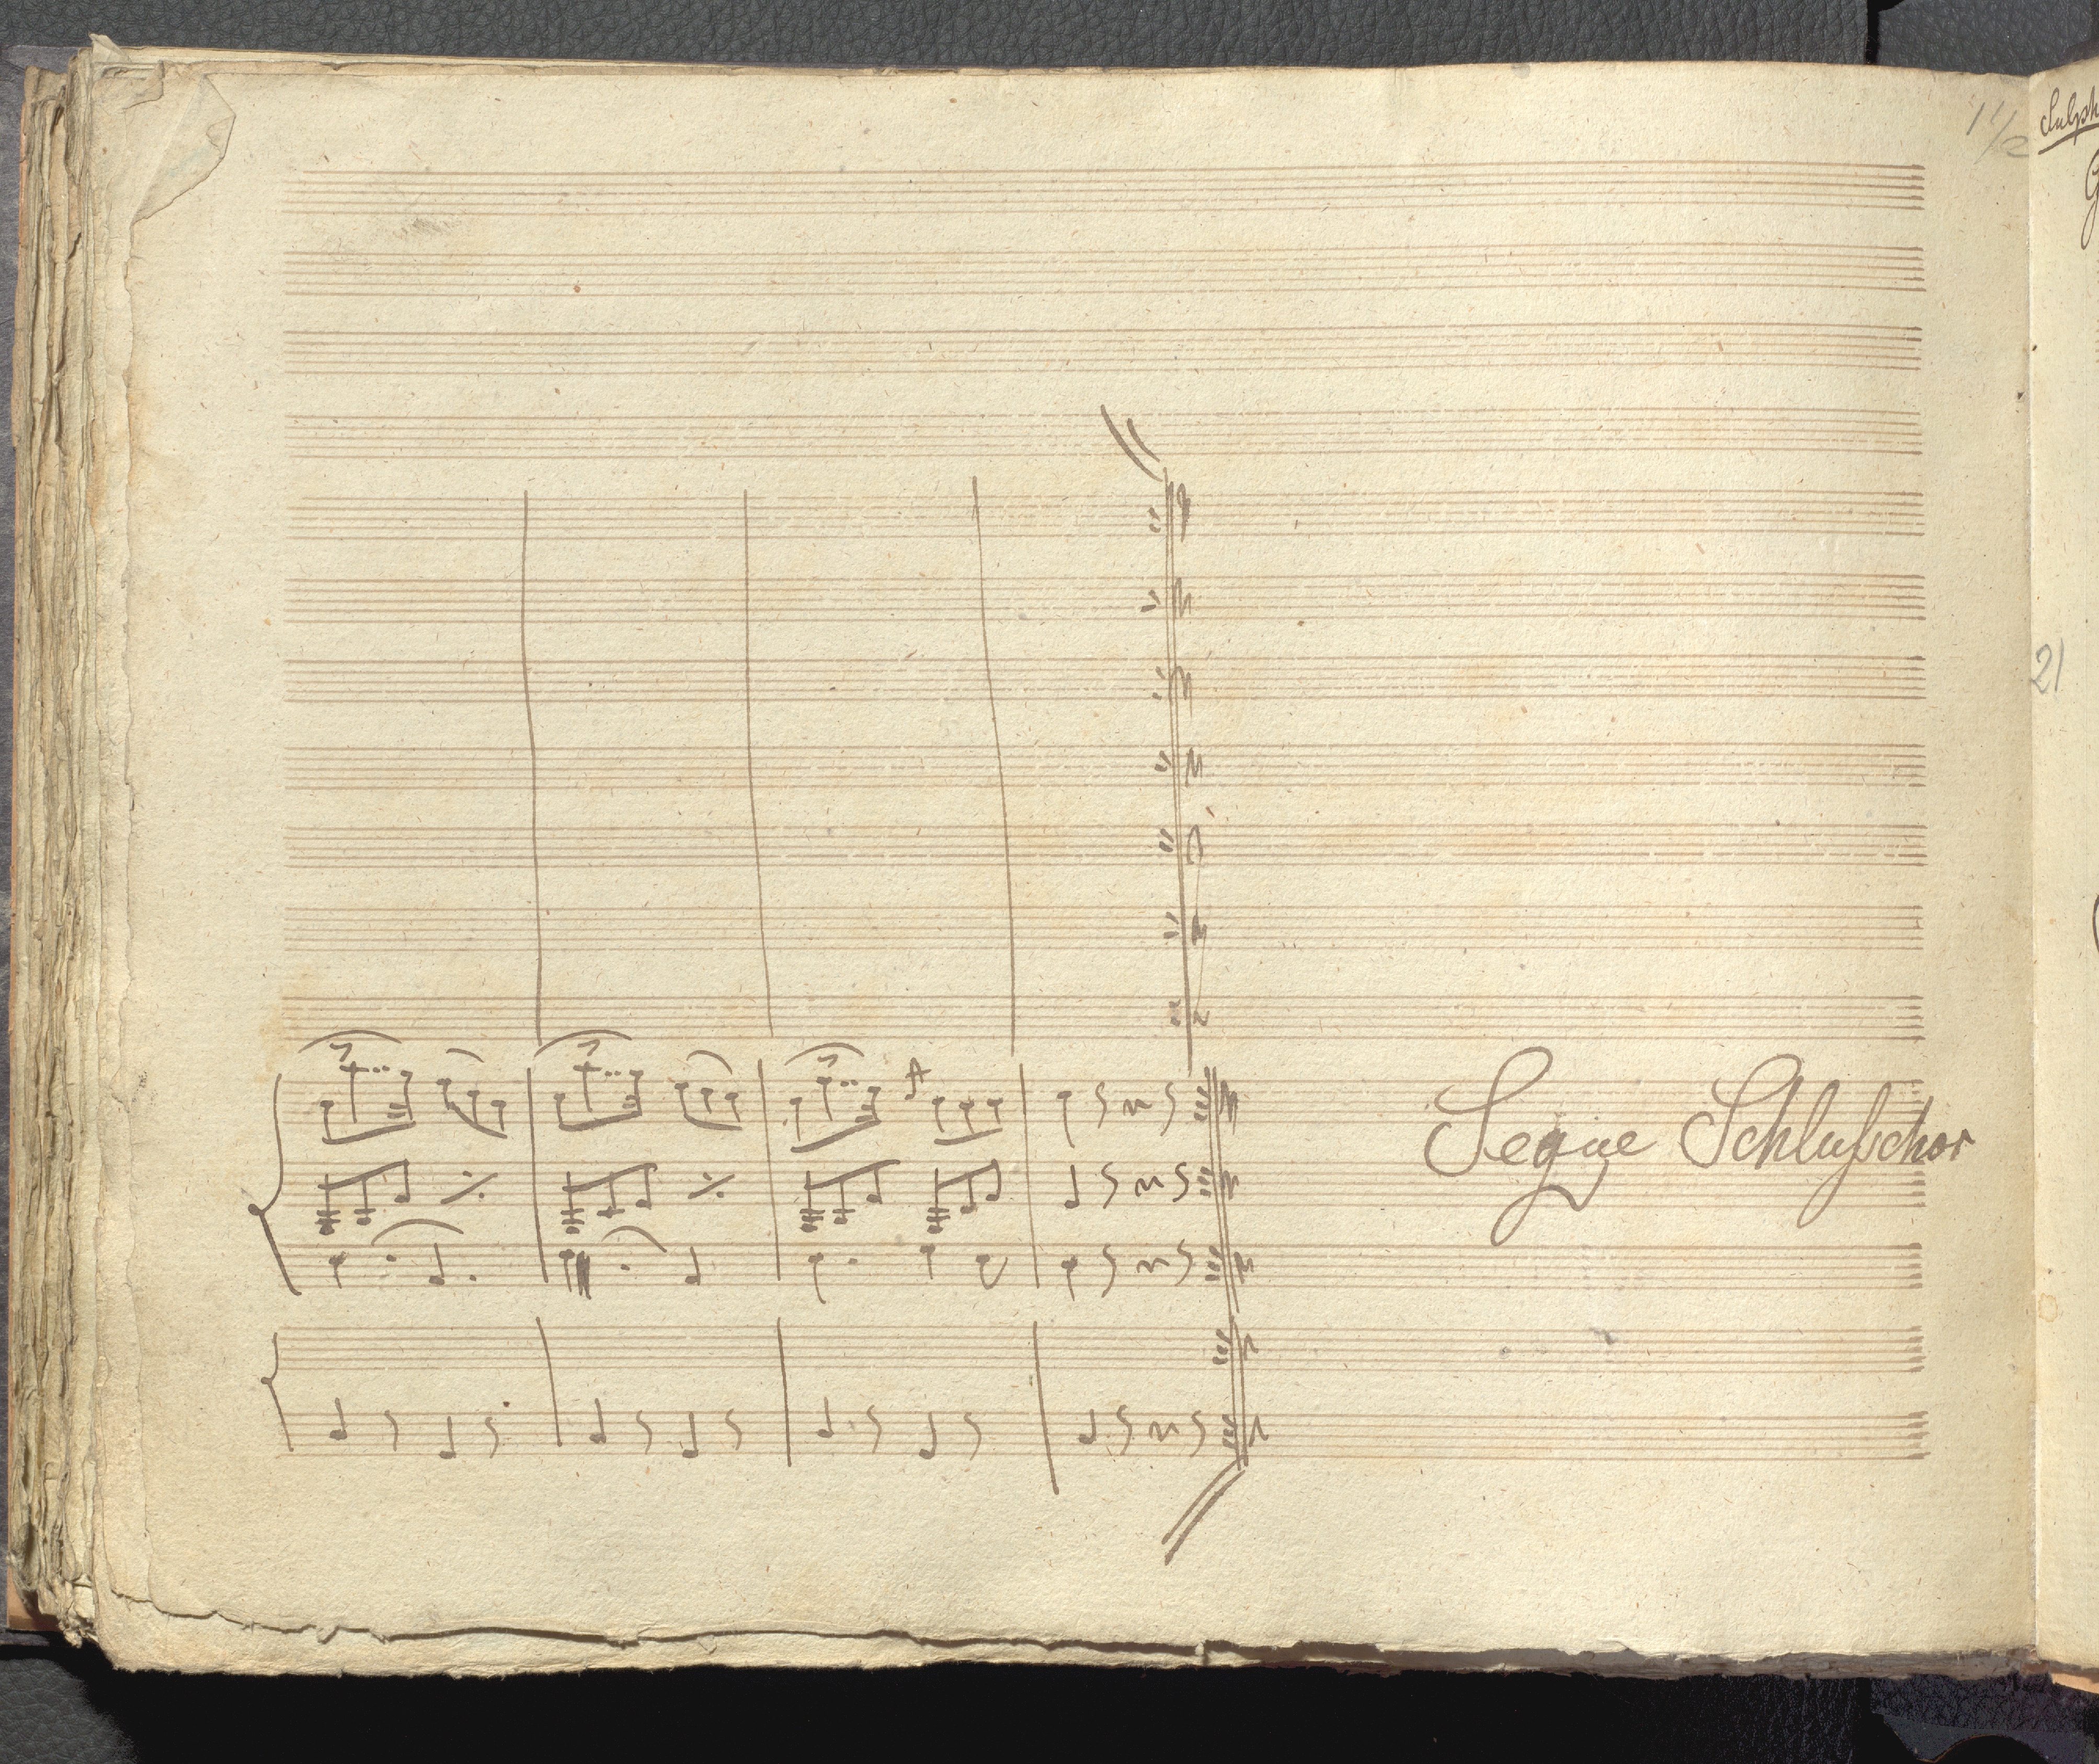 11/2
21
Segue Schlußchor